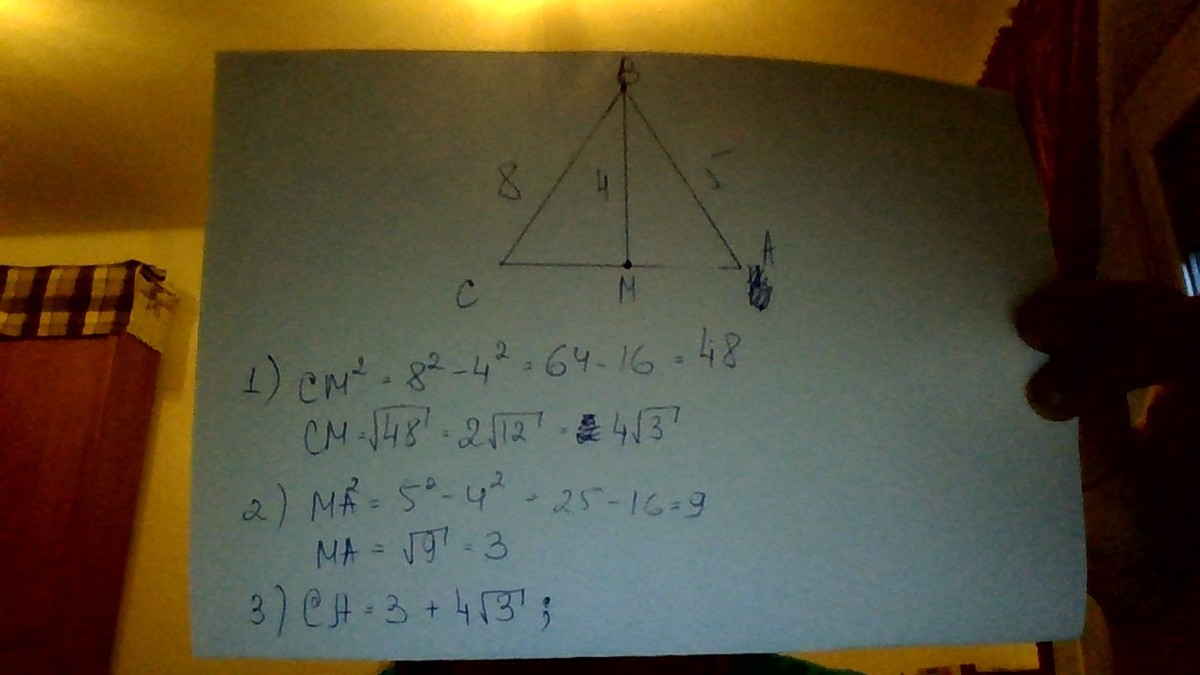 B
8
4
5
C
M
A
1) CM² = 8² - 4² = 64 - 16 = 48
CM = √48 = 2√12 = 4√3
2) MA² = 5² - 4² = 25 - 16 = 9
MA = √9 = 3
3) CA = 3 + 4√3 ;